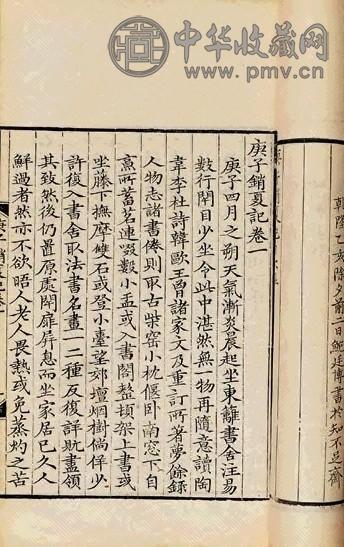 中华收藏网
www.pmv.cn
乾隆乙亥除夕前二日鮑廷博書於知不足齋
庚子銷夏記卷一
庚子四月之朔天氣漸炎晨起坐東籬書舍注易
數行閉目少坐令此中湛然無一物再隨意讀陶
韋李杜詩韓歐王曾諸家文及重訂所著夢餘錄
人物志諸書倦則取古柴窑小枕偃臥南窗下自
烹所蓄茗連啜數小盂或入書閣整頓架上書或
坐藤下撫摩雙石或登小臺望郊壇烟樹徜徉少
許復入書舍取法書名畫一二種反復詳玩盡領
其致然後仍置原處閉扉屏息而坐家居已久人
鮮過者然亦不欲晤人老人畏熱或免蒸灼之苦